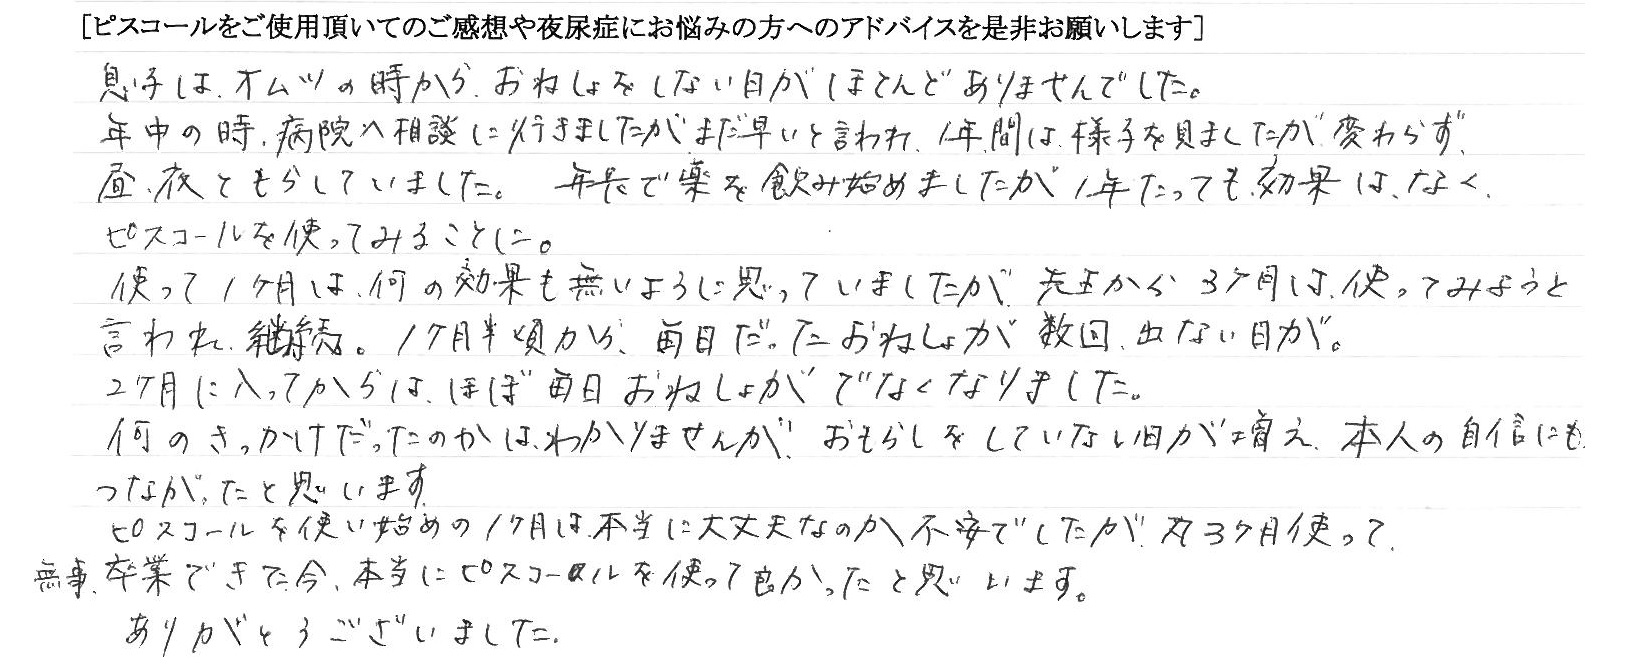 [ピスコールをご使用頂いてのご感想や夜尿症にお悩みの方へのアドバイスを是非お願いします]
息子は、オムツの時から、おねしょをしない日がほとんどありませんでした。
年中の時、病院へ相談に行きましたがまだ早いと言われ、1年間は、様子を見ましたが変わらず、
昼、夜ともらしていました。 年長で薬を飲み始めましたが1年たっても、効果は、なく、
ピスコールを使ってみることに。
使って1ヶ月は、何の効果も無いように思っていましたが、先生から3ヶ月は、使ってみようと
言われ、継続。1ヶ月半頃から、毎日だったおねしょが数回、出ない日が。
2ヶ月に入ってからは、ほぼ毎日おねしょがでなくなりました。
何のきっかけだったのかは、わかりませんが、おもらしをしていない日が増え、本人の自信にも
つながったと思います。
ピスコールを使い始めの1ヶ月は、本当に大丈夫なのか不安でしたが、丸3ヶ月使って、
無事、卒業できた今、本当にピスコールを使って良かったと思います。
ありがとうございました。